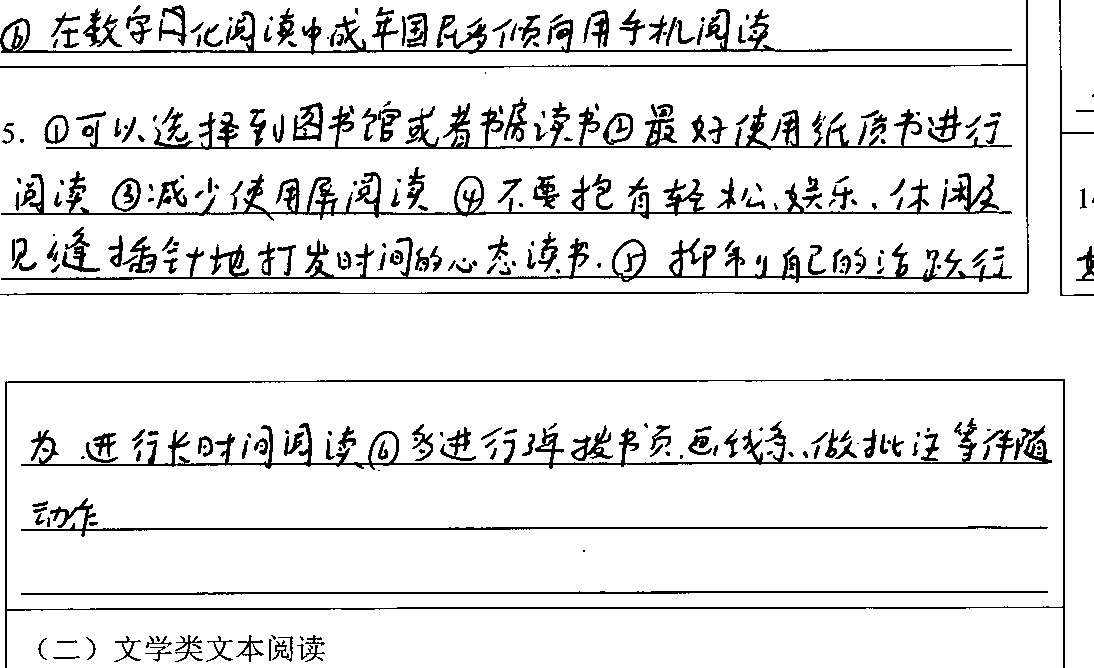 ⑥ 在数字网化阅读中成年国民多倾向用手机阅读
5. ①可以选择到图书馆或者书房读书②最好使用纸质书进行
阅读 ③减少使用屏阅读 ④不要抱有轻松、娱乐、休闲及
见缝插针地打发时间的心态读书.⑤ 抑制自己的活跃行
为.进行长时间阅读⑥多进行弹拨书页.画线条、做批注等伴随
动作
(二)文学类文本阅读